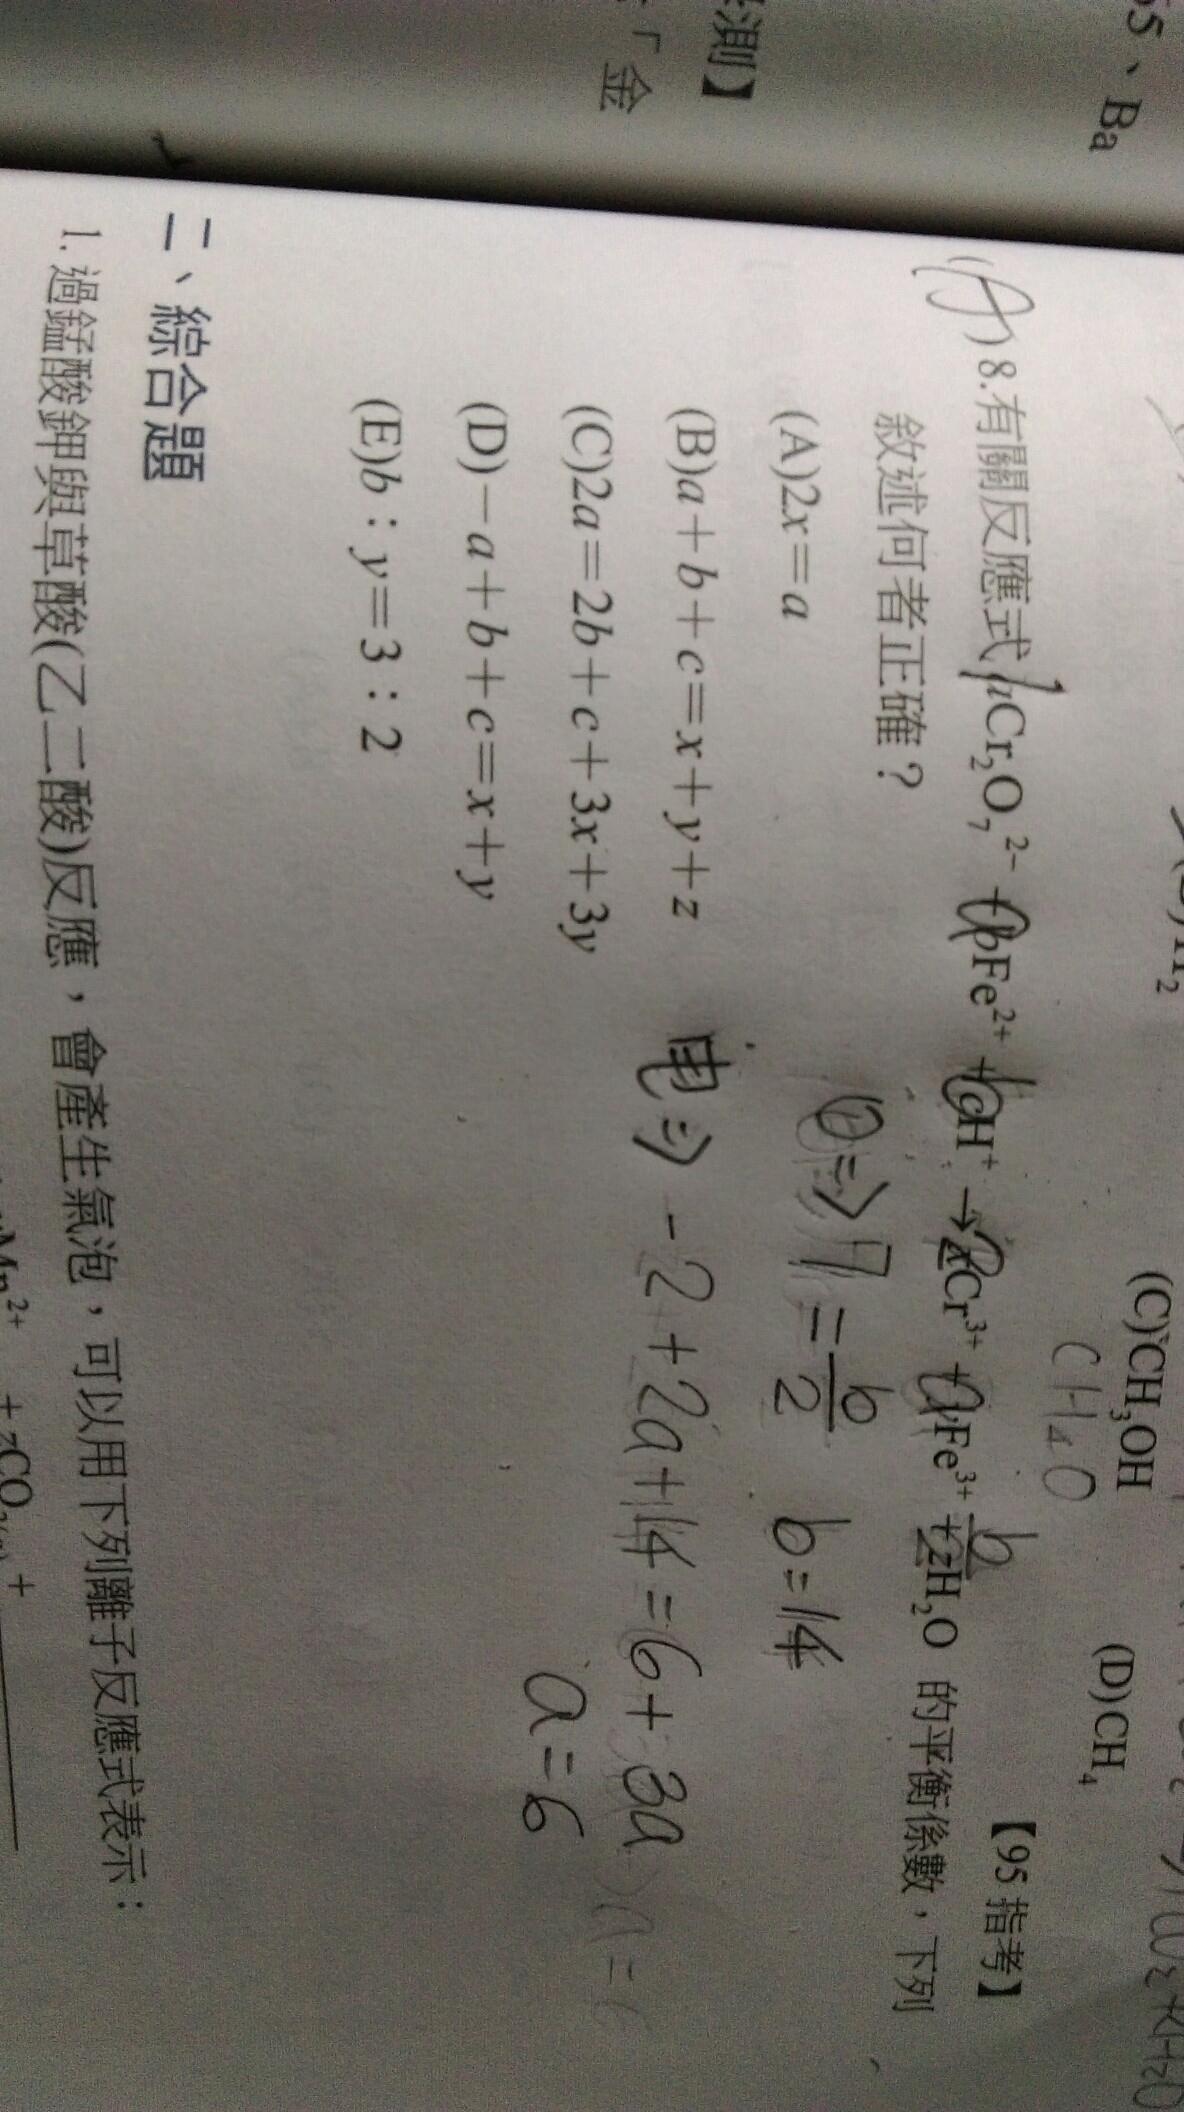 5、Ba
測】
「金
(C)CH₃OH
(D)CH₄
CH₄O
【95 指考】
8.有關反應式aCr₂O₇²⁻+bFe²⁺+cH⁺→xCr³⁺+yFe³⁺+zH₂O 的平衡係數,下列
敘述何者正確?
(A)2x=a
(B)a+b+c=x+y+z
(C)2a=2b+c+3x+3y
(D)−a+b+c=x+y
(E)b:y=3:2
1
a
b
2
a
b/2
O=>7=b/2 b=14
电=>-2+2a+14=6+3a
a=6
二、綜合題
1. 過錳酸鉀與草酸(乙二酸)反應,會產生氣泡,可以用下列離子反應式表示:
Mn²⁺ +zCO₂ +